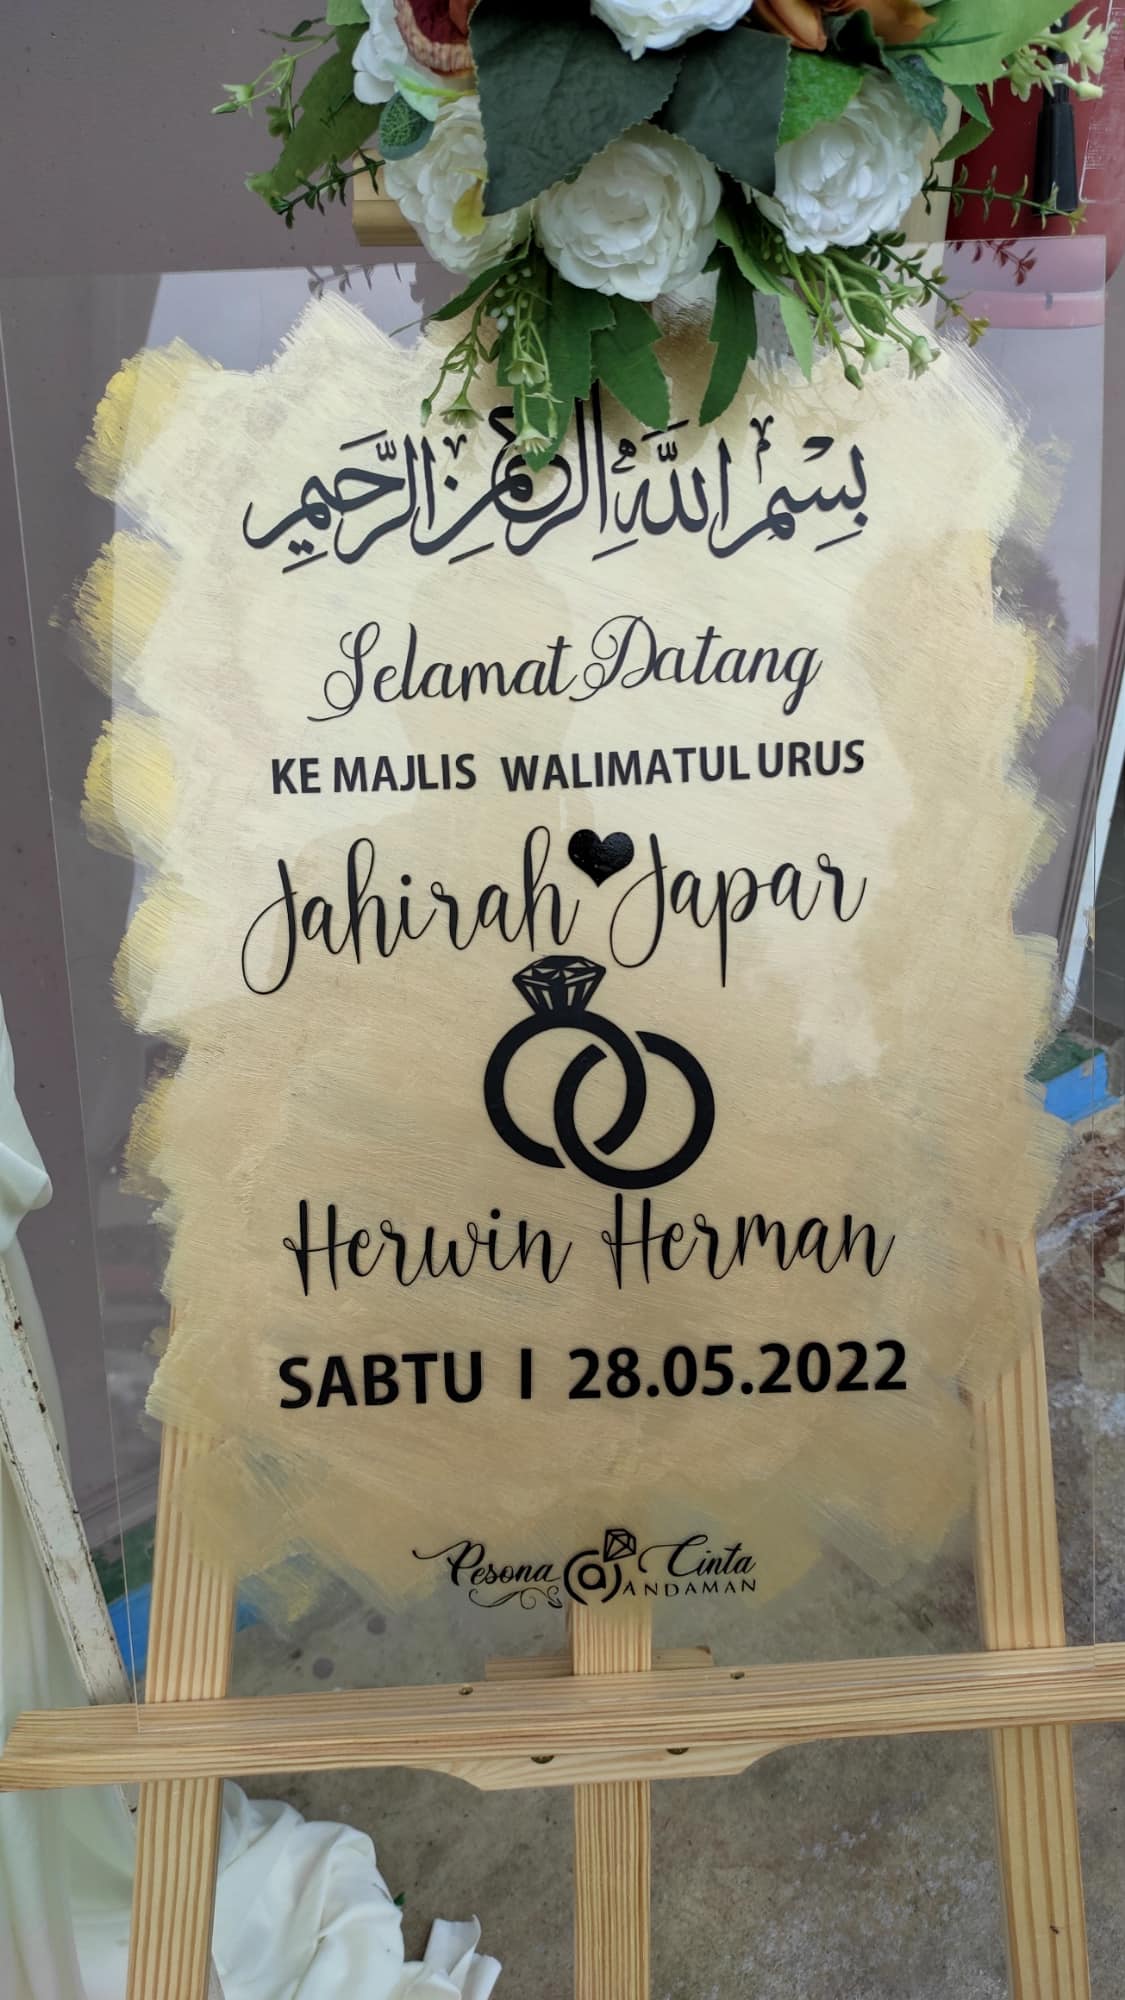 بِسْمِ اللَّهِ الرَّحْمَٰنِ الرَّحِيمِ
Selamat Datang
KE MAJLIS WALIMATUL URUS
Jahirah ♥ Japar
Herwin Herman
SABTU I 28.05.2022
Pesona @ Cinta
ANDAMAN